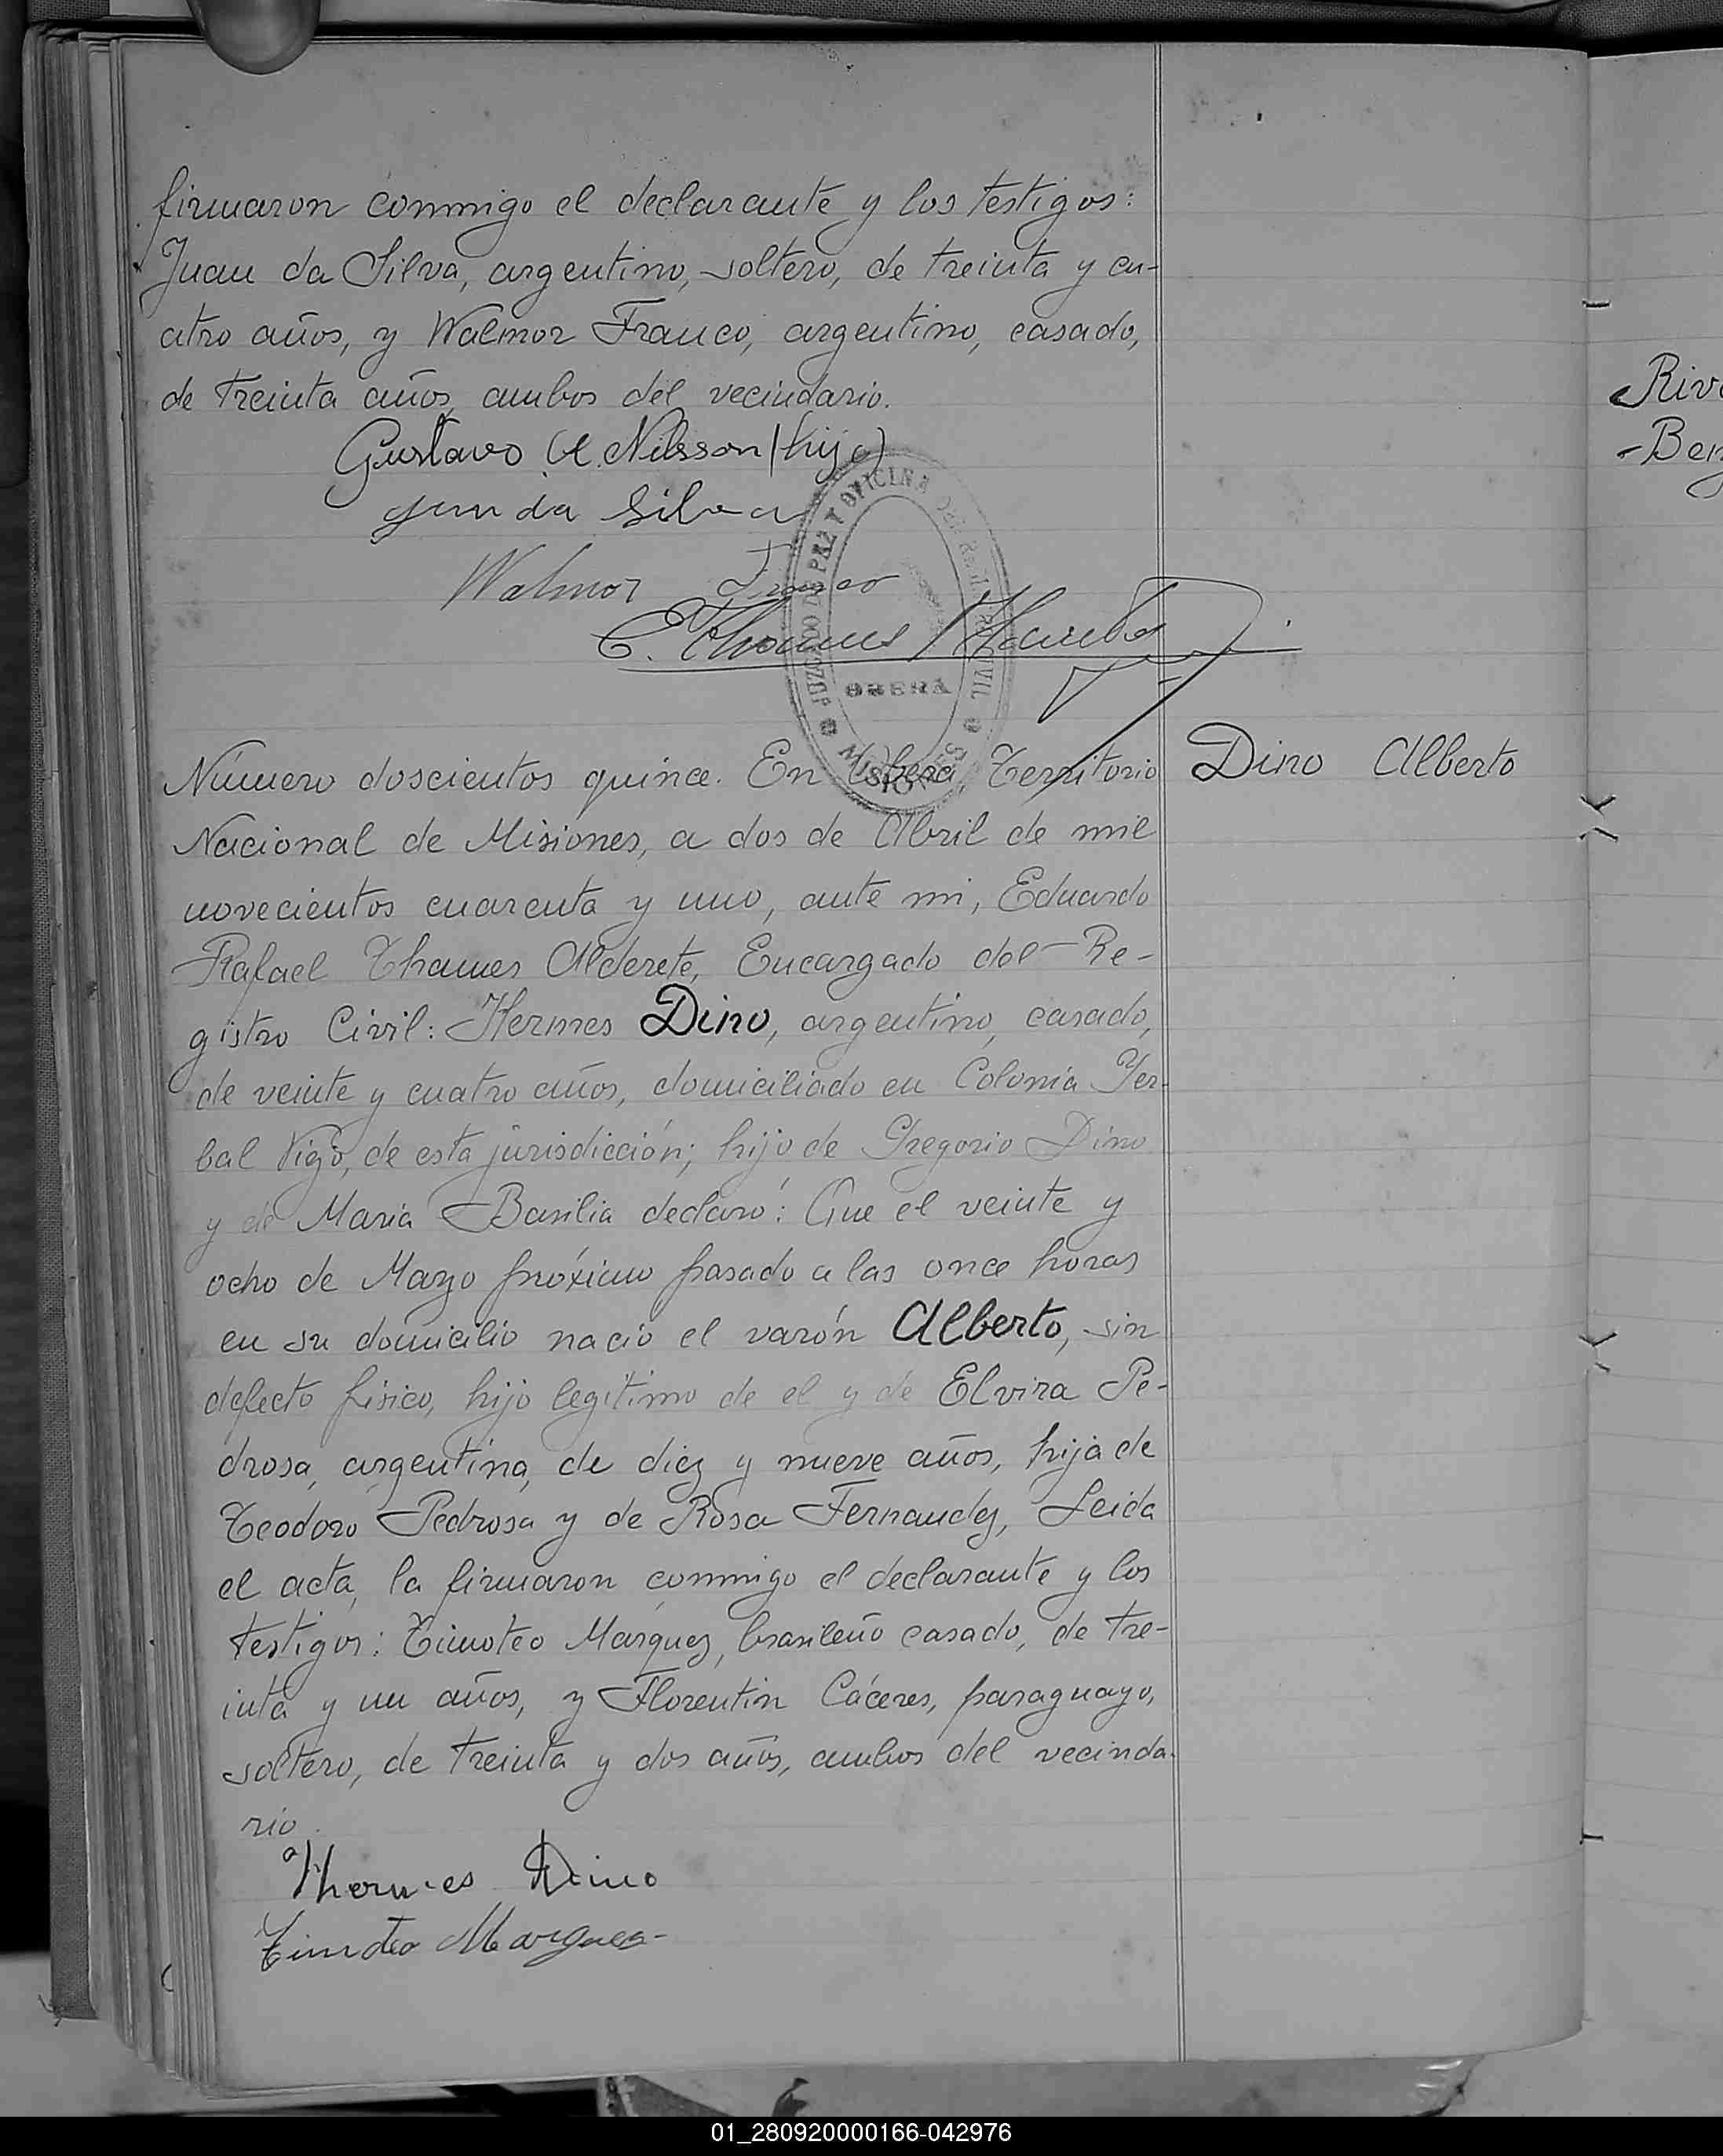 firmaron conmigo el declarante y los testigos:
Juan da Silva, argentino, soltero, de treinta y cu-
atro años, y Walmor Franco, argentino, casado,
de treinta años, ambos del vecindario.
Gustavo A. Nilsson (hijo)
Juan da Silva
Walmor Franco
E. Thames
JUZGADO DE PAZ Y OFICINA DEL REGISTRO CIVIL
OBERÁ
MISIONES
Número doscientos quince. En Oberá, Territorio
Dino Alberto
Nacional de Misiones, a dos de Abril de mil
novecientos cuarenta y uno, ante mi, Eduardo
Rafael Thames Alderete, Encargado del Re-
gistro Civil: Hermes Dino, argentino, casado,
de veinte y cuatro años, domiciliado en Colonia Yer-
bal Viejo, de esta jurisdicción; hijo de Gregorio Dino
y de Maria Basilia declaró: Que el veinte y
ocho de Mayo próximo pasado a las once horas
en su domicilio nació el varón Alberto, sin
defecto fisico, hijo legitimo de el y de Elvira Pe-
drosa, argentina, de diez y nueve años, hija de
Teodoro Pedrosa y de Rosa Fernandez, Leida
el acta, la firmaron conmigo el declarante y los
testigos: Timoteo Márquez, brasileño casado, de tre-
inta y un años, y Florentin Cáceres, paraguayo,
soltero, de treinta y dos años, ambos del vecinda-
rio.
Thermes Dino
Timoteo Marques
Riv
Ben
01_280920000166-042976